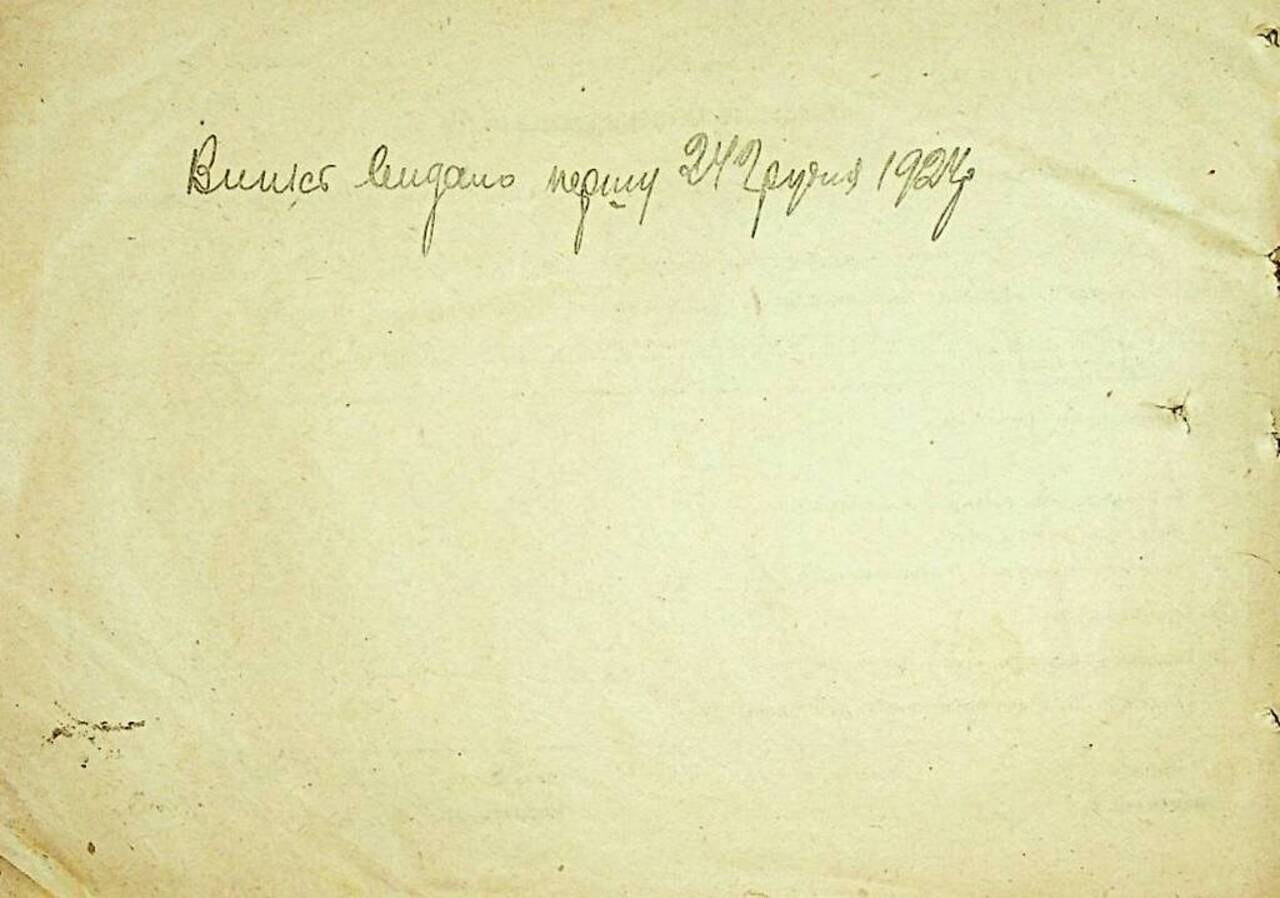 Випіст видано першу 24 Грудня 1924 р